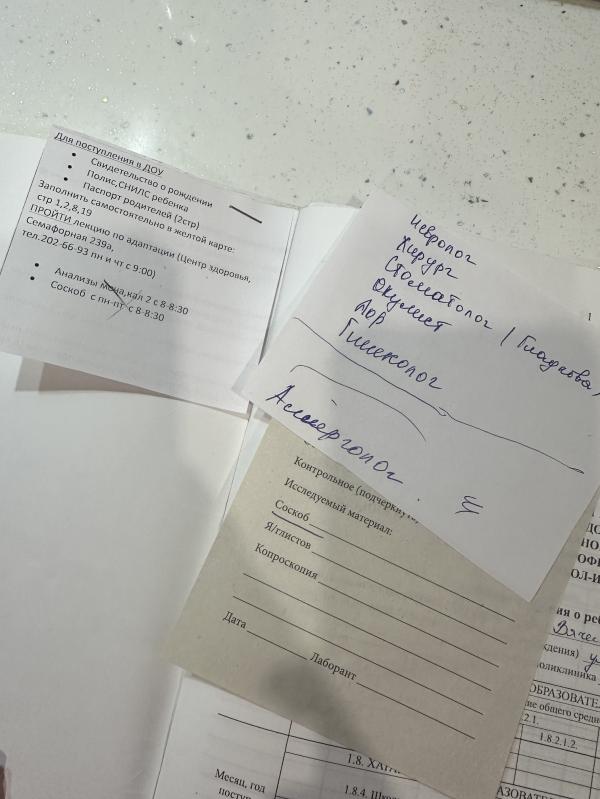 Для поступления в ДОУ
Свидетельство о рождении
Полис,СНИЛС ребенка
Паспорт родителей (2стр)
Заполнить самостоятельно в желтой карте:
стр 1,2,8,19
ПРОЙТИ лекцию по адаптации (Центр здоровья,
Семафорная 239а,
тел.202-66-93 пн и чт с 9:00)
Анализы моча,кал 2 с 8-8:30
Соскоб с пн-пт с 8-8:30
Невролог
Хирург
Стоматолог / Гладкова /
Окулист
Лор
Гинеколог
Аллерголог
1
Контрольное (подчеркнуть)
Исследуемый материал:
Соскоб
Я/глистов
Копроскопия
Дата
Лаборант
ия о реб
Вяче
ждения)
оликлиника
ОБРАЗОВАТЕ
ие общего средн
2.1.
1.8.2.1.2.
1.8. ХАРА
АЗОВАТЕ
1.8.4. Шко
Месяц, год
поступ